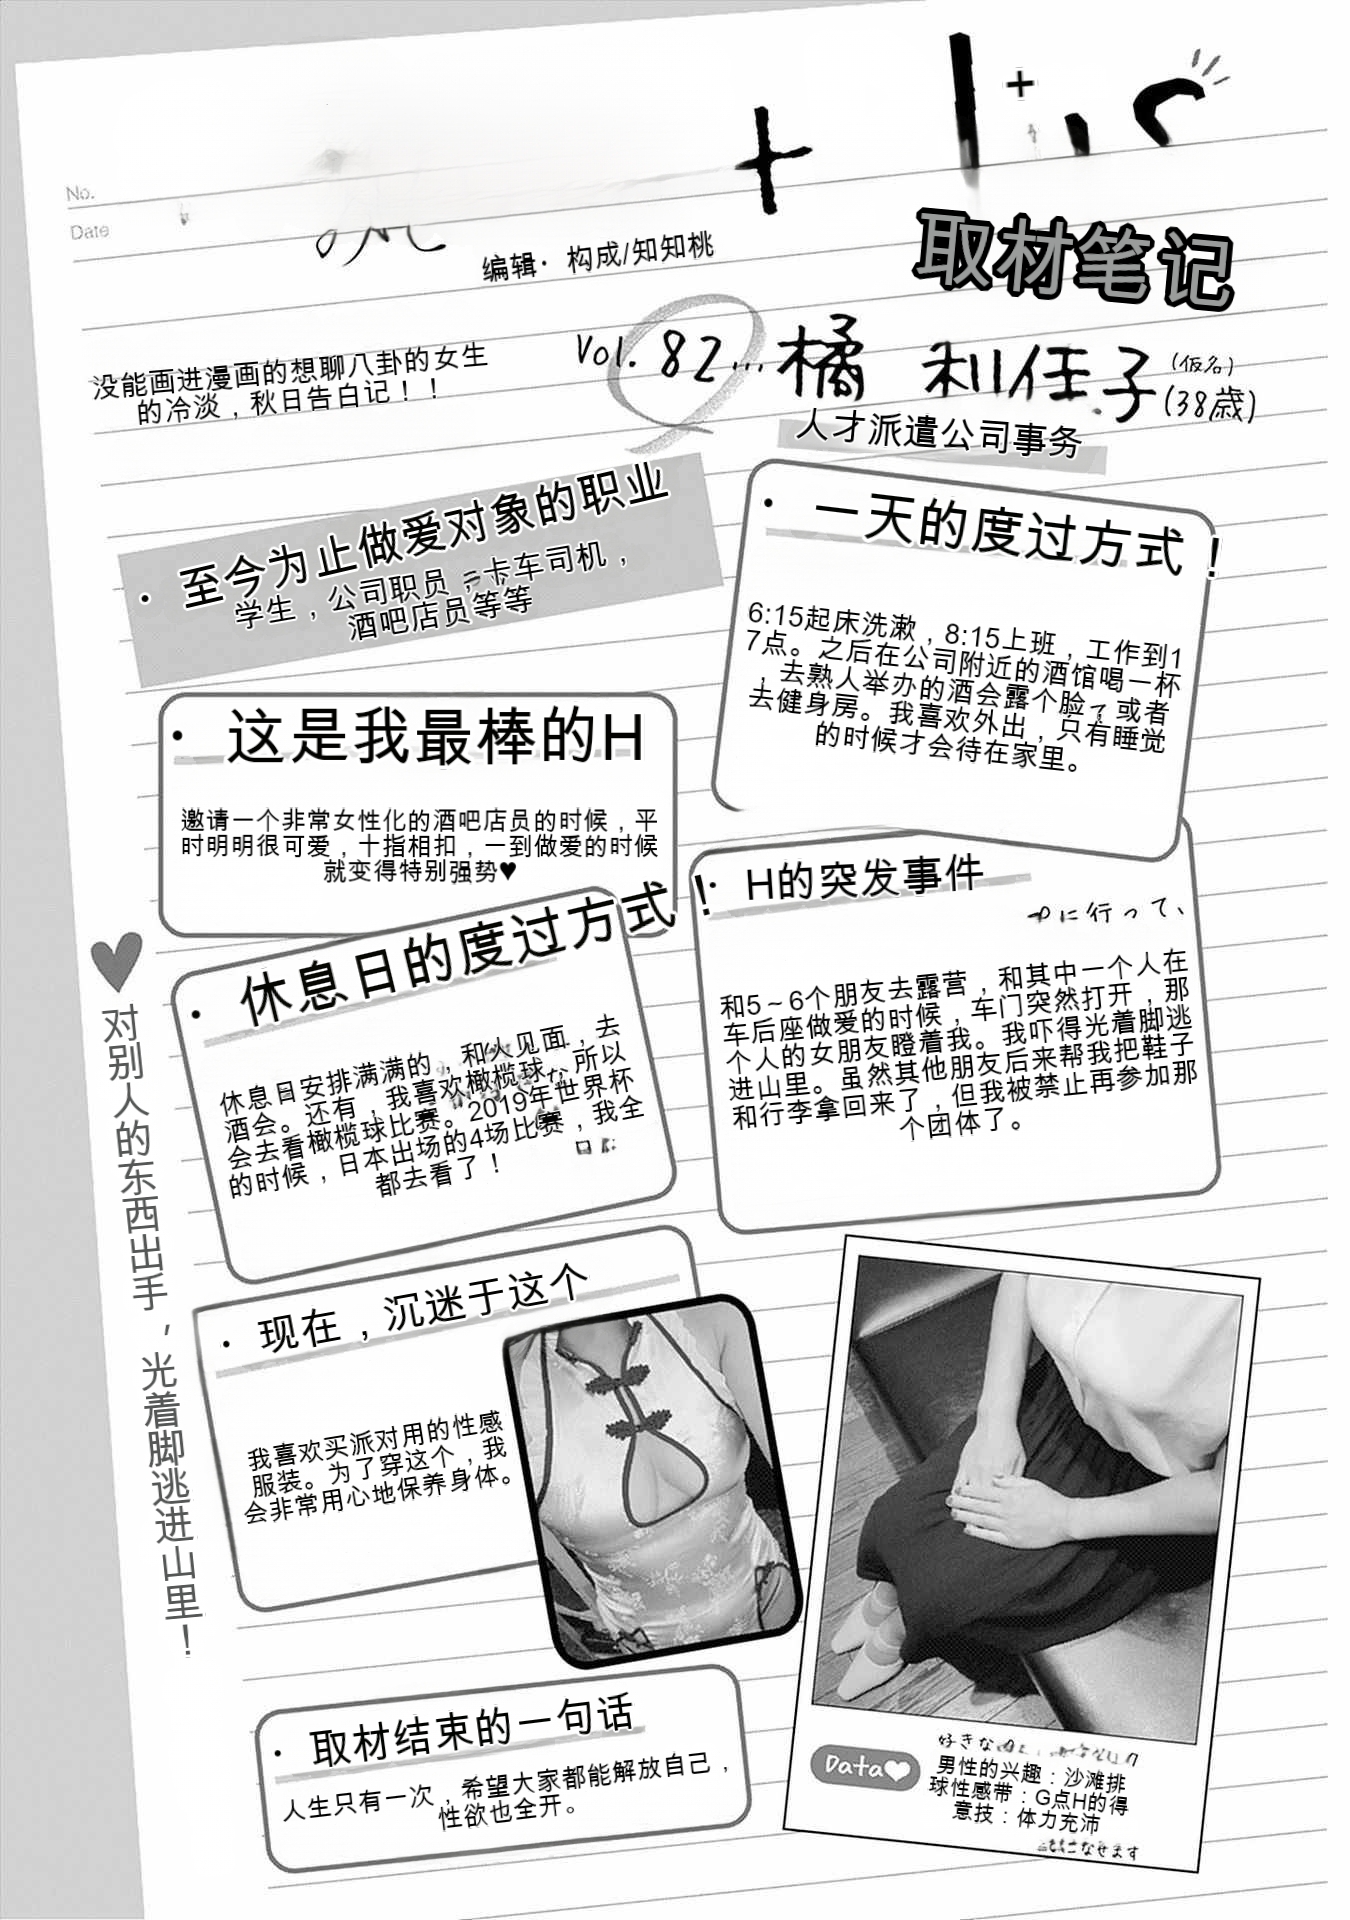 No.
Date
取材笔记
编辑·构成/知知桃
Vol. 82…橘 利任子
(仮名)
(38歳)
没能画进漫画的想聊八卦的女生
的冷淡，秋日告白记！！
人才派遣公司事务
·至今为止做爱对象的职业
学生，公司职员，卡车司机，
酒吧店员等等
·一天的度过方式！
6:15起床洗漱，8:15上班，工作到1
7点。之后在公司附近的酒馆喝一杯
，去熟人举办的酒会露个脸，或者
去健身房。我喜欢外出，只有睡觉
的时候才会待在家里。
·这是我最棒的H
邀请一个非常女性化的酒吧店员的时候，平
时明明很可爱，十指相扣，一到做爱的时候
就变得特别强势♥
·H的突发事件
中に行って、
和5~6个朋友去露营，和其中一个人在
车后座做爱的时候，车门突然打开，那
个人的女朋友瞪着我。我吓得光着脚逃
进山里。虽然其他朋友后来帮我把鞋子
和行李拿回来了，但我被禁止再参加那
个团体了。
·休息日的度过方式！
休息日安排满满的，和火见面，去
酒会。还有，我喜欢橄榄球，所以
会去看橄榄球比赛。2019年世界杯
的时候，日本出场的4场比赛，我全
都去看了！
♥对别人的东西出手，光着脚逃进山里！
·现在，沉迷于这个
我喜欢买派对用的性感
服装。为了穿这个，我
会非常用心地保养身体。
·取材结束的一句话
人生只有一次，希望大家都能解放自己，
性欲也全开。
Data♥
好きな
男性的兴趣：沙滩排
球性感带：G点H的得
意技：体力充沛
なせます